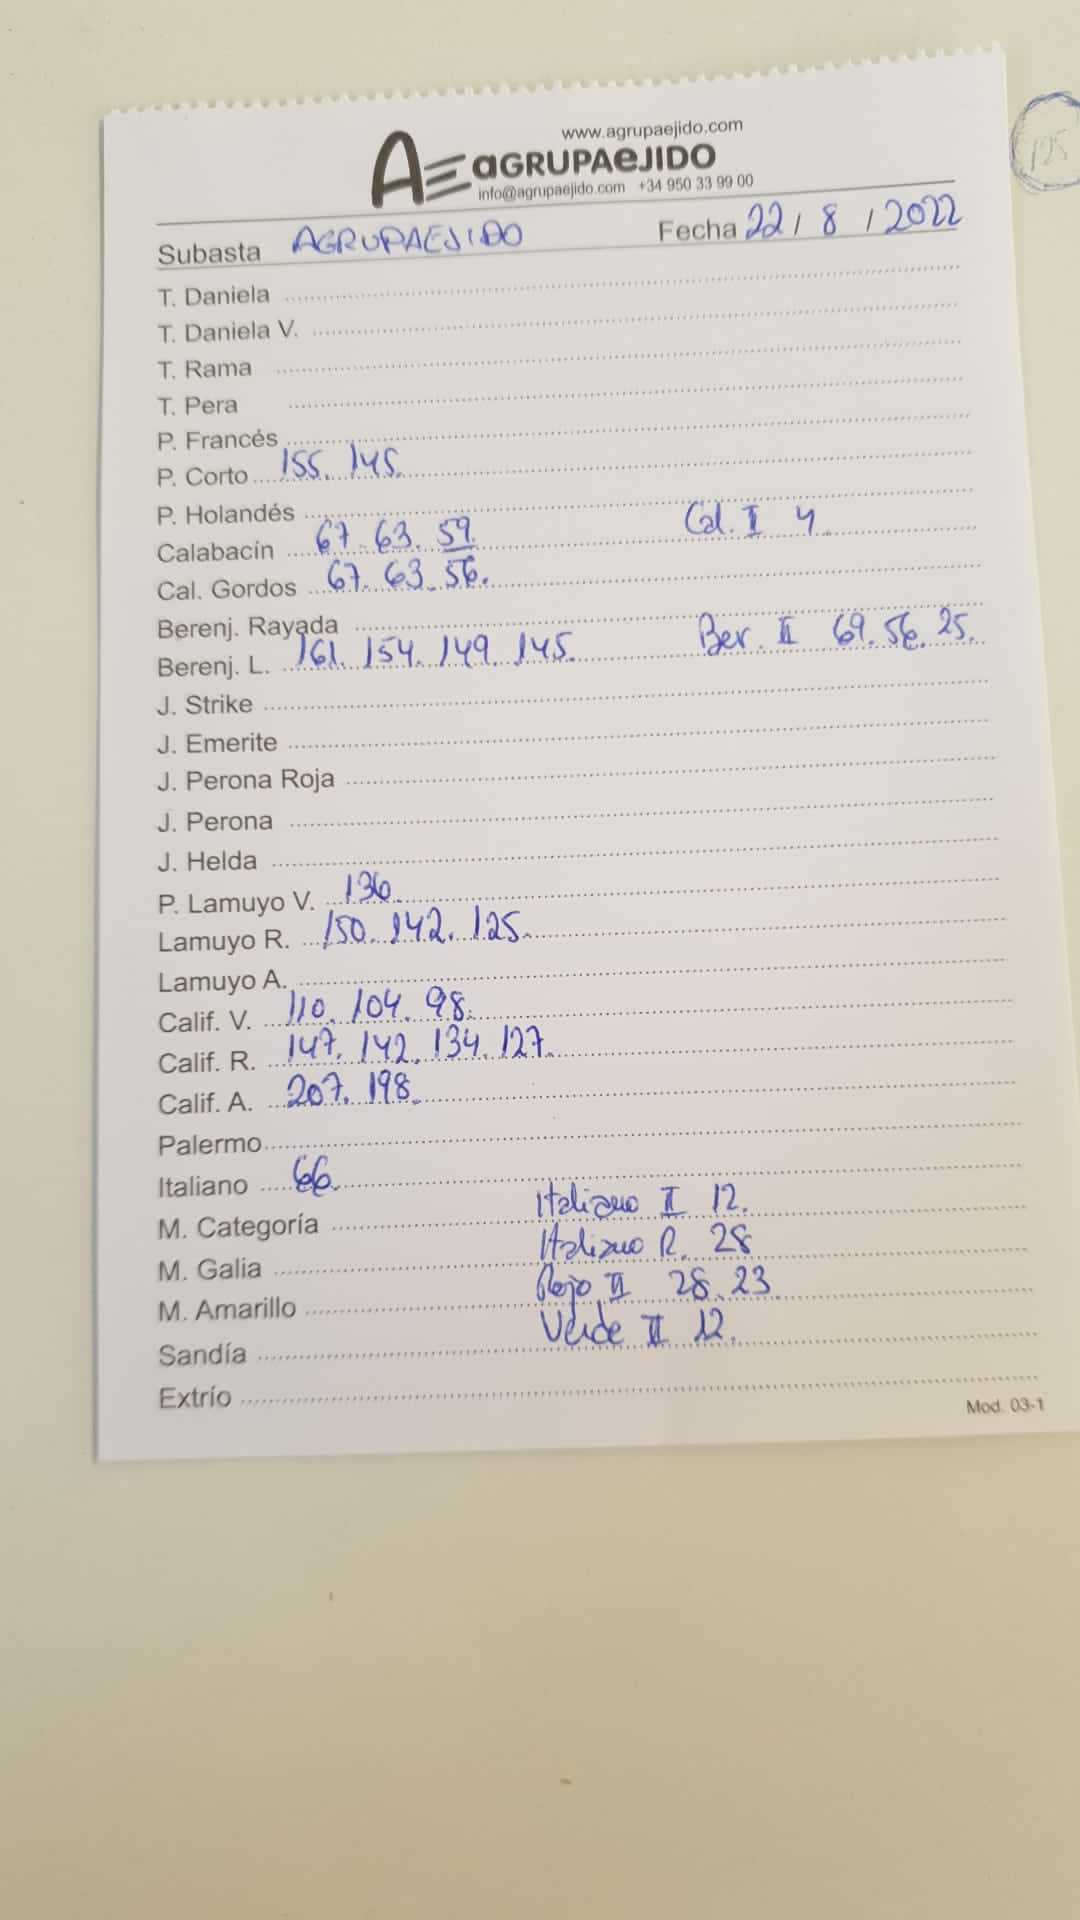 www.agrupaejido.com
AE aGRUPAeJIDO
info@agrupaejido.com +34 950 33 99 00
125
Subasta AGRUPAEJIDO Fecha 22 / 8 / 2022
T. Daniela
T. Daniela V.
T. Rama
T. Pera
P. Francés
P. Corto 155. 145.
P. Holandés
Calabacín 67. 63. 59. Cal. II 4.
Cal. Gordos 67. 63. 56.
Berenj. Rayada
Berenj. L. 161. 154. 149. 145. Ber. II 69. 56. 25.
J. Strike
J. Emerite
J. Perona Roja
J. Perona
J. Helda
P. Lamuyo V. 136.
Lamuyo R. 150. 142. 125.
Lamuyo A.
Calif. V. 110. 104. 98.
Calif. R. 147. 142. 134. 127.
Calif. A. 207. 198.
Palermo
Italiano 66.
M. Categoría Italiano II 12.
M. Galia Italiano R. 28
M. Amarillo Rojo II 28. 23.
Sandía Verde II 12.
Extrío
Mod. 03-1